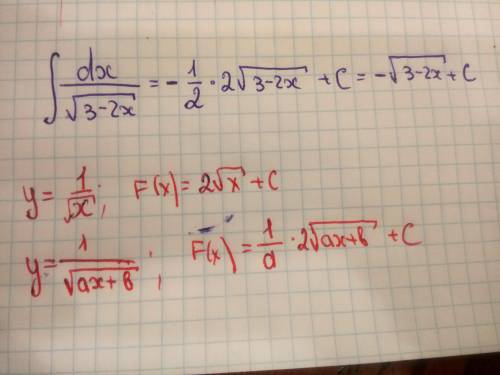 ∫ dx/√(3-2x) = -1/2 · 2√(3-2x) + C = -√(3-2x) + C
y = 1/√x ; F(x) = 2√x + C
y = 1/√(ax+b) ; F(x) = 1/a · 2√(ax+b) + C